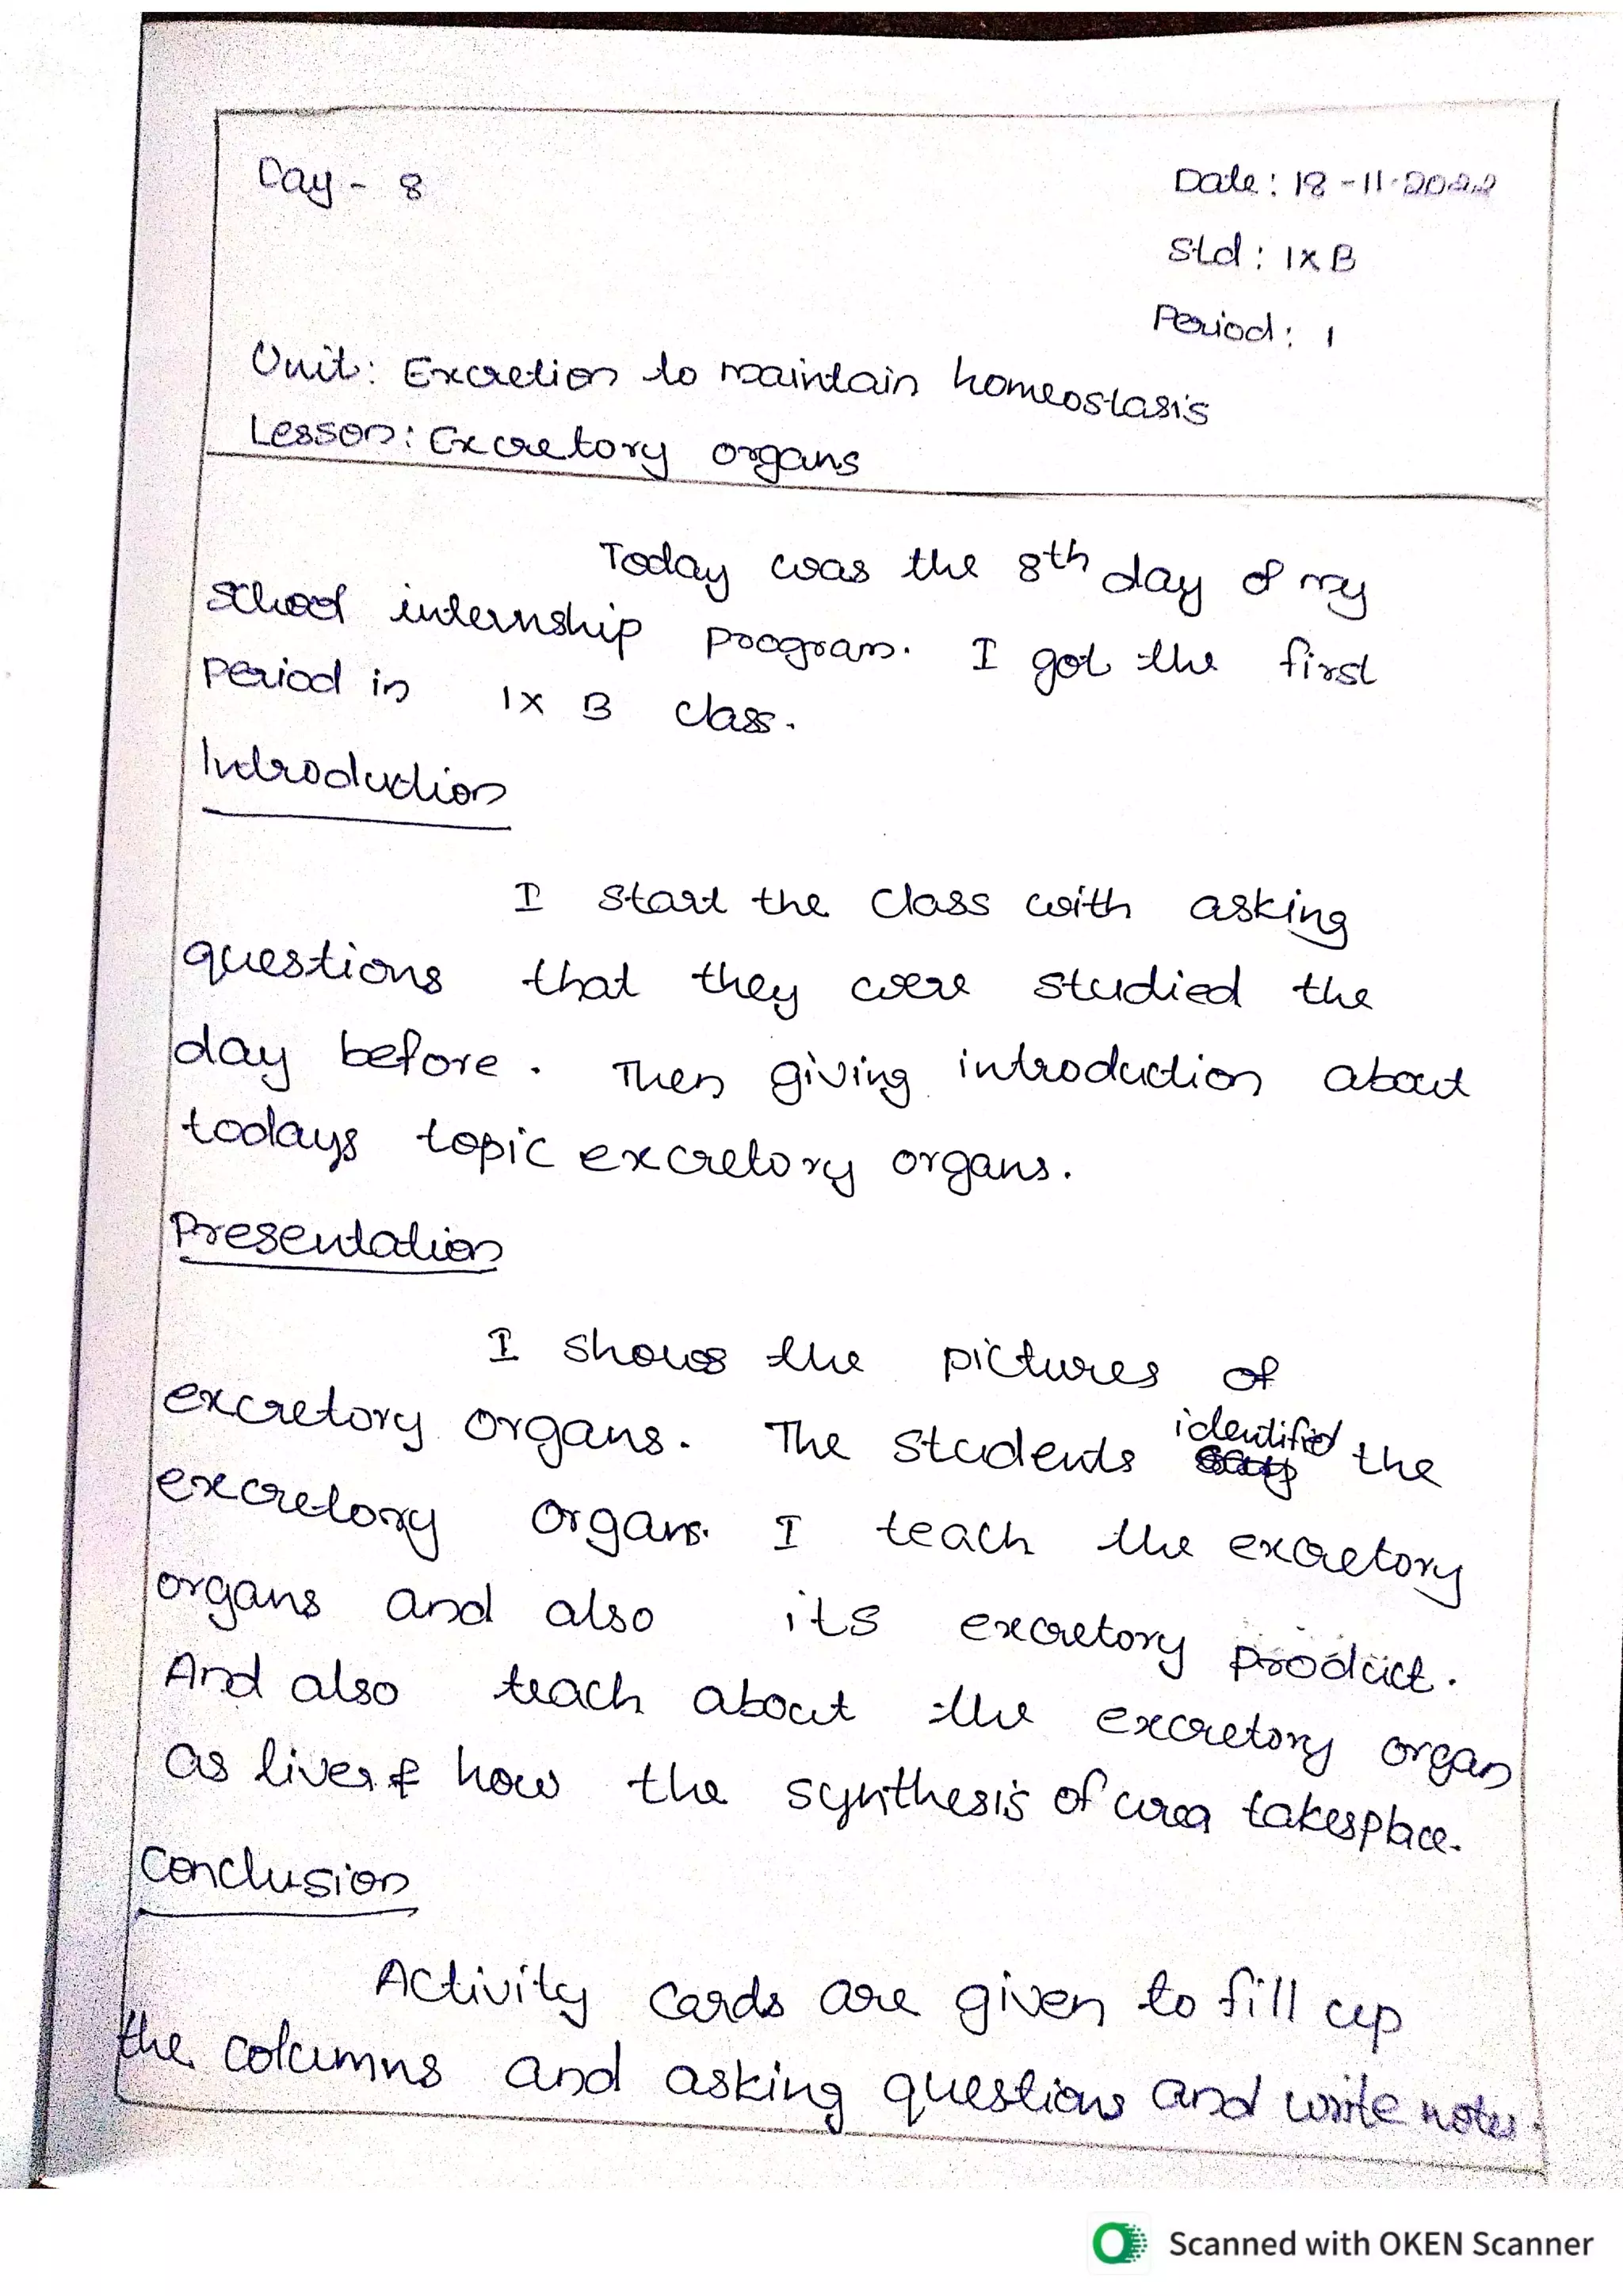 Day - 8
Date : 18 - 11 - 2022
Std : IX B
Period : 1
Unit : Excretion to maintain homeostasis
Lesson : Excretory organs
Today was the 8th day of my
school internship program. I got the first
period in IX B class.
Introduction
I start the class with asking
questions that they were studied the
day before. Then giving introduction about
todays topic excretory organs.
Presentation
I shows the pictures of
excretory organs. The students identified the
excretory organs. I teach the excretory
organs and also its excretory product.
And also teach about the excretory organ
as liver & how the synthesis of urea takesplace.
Conclusion
Activity cards are given to fill up
the columns and asking questions and write notes.
Scanned with OKEN Scanner